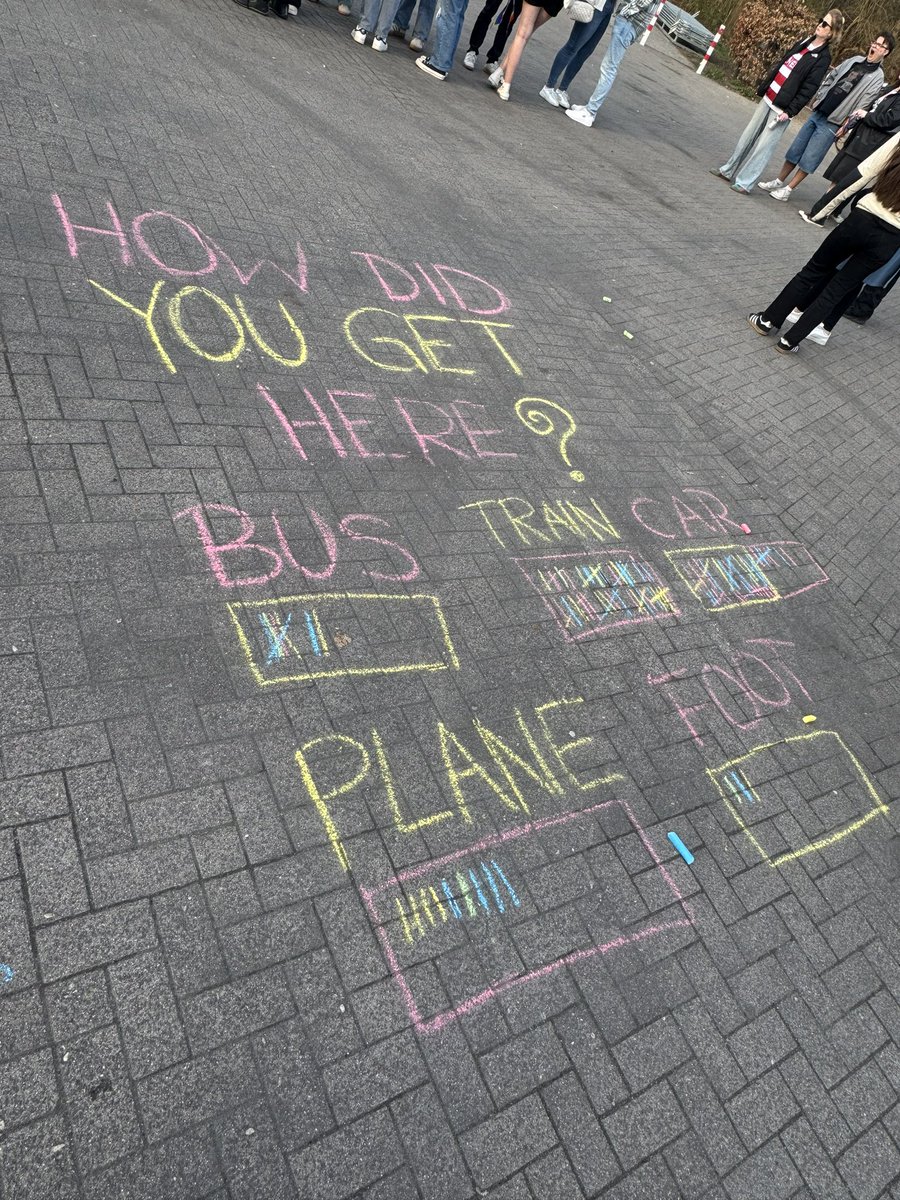 HOW DID
YOU GET
HERE?
BUS
TRAIN
CAR
FOOT
PLANE